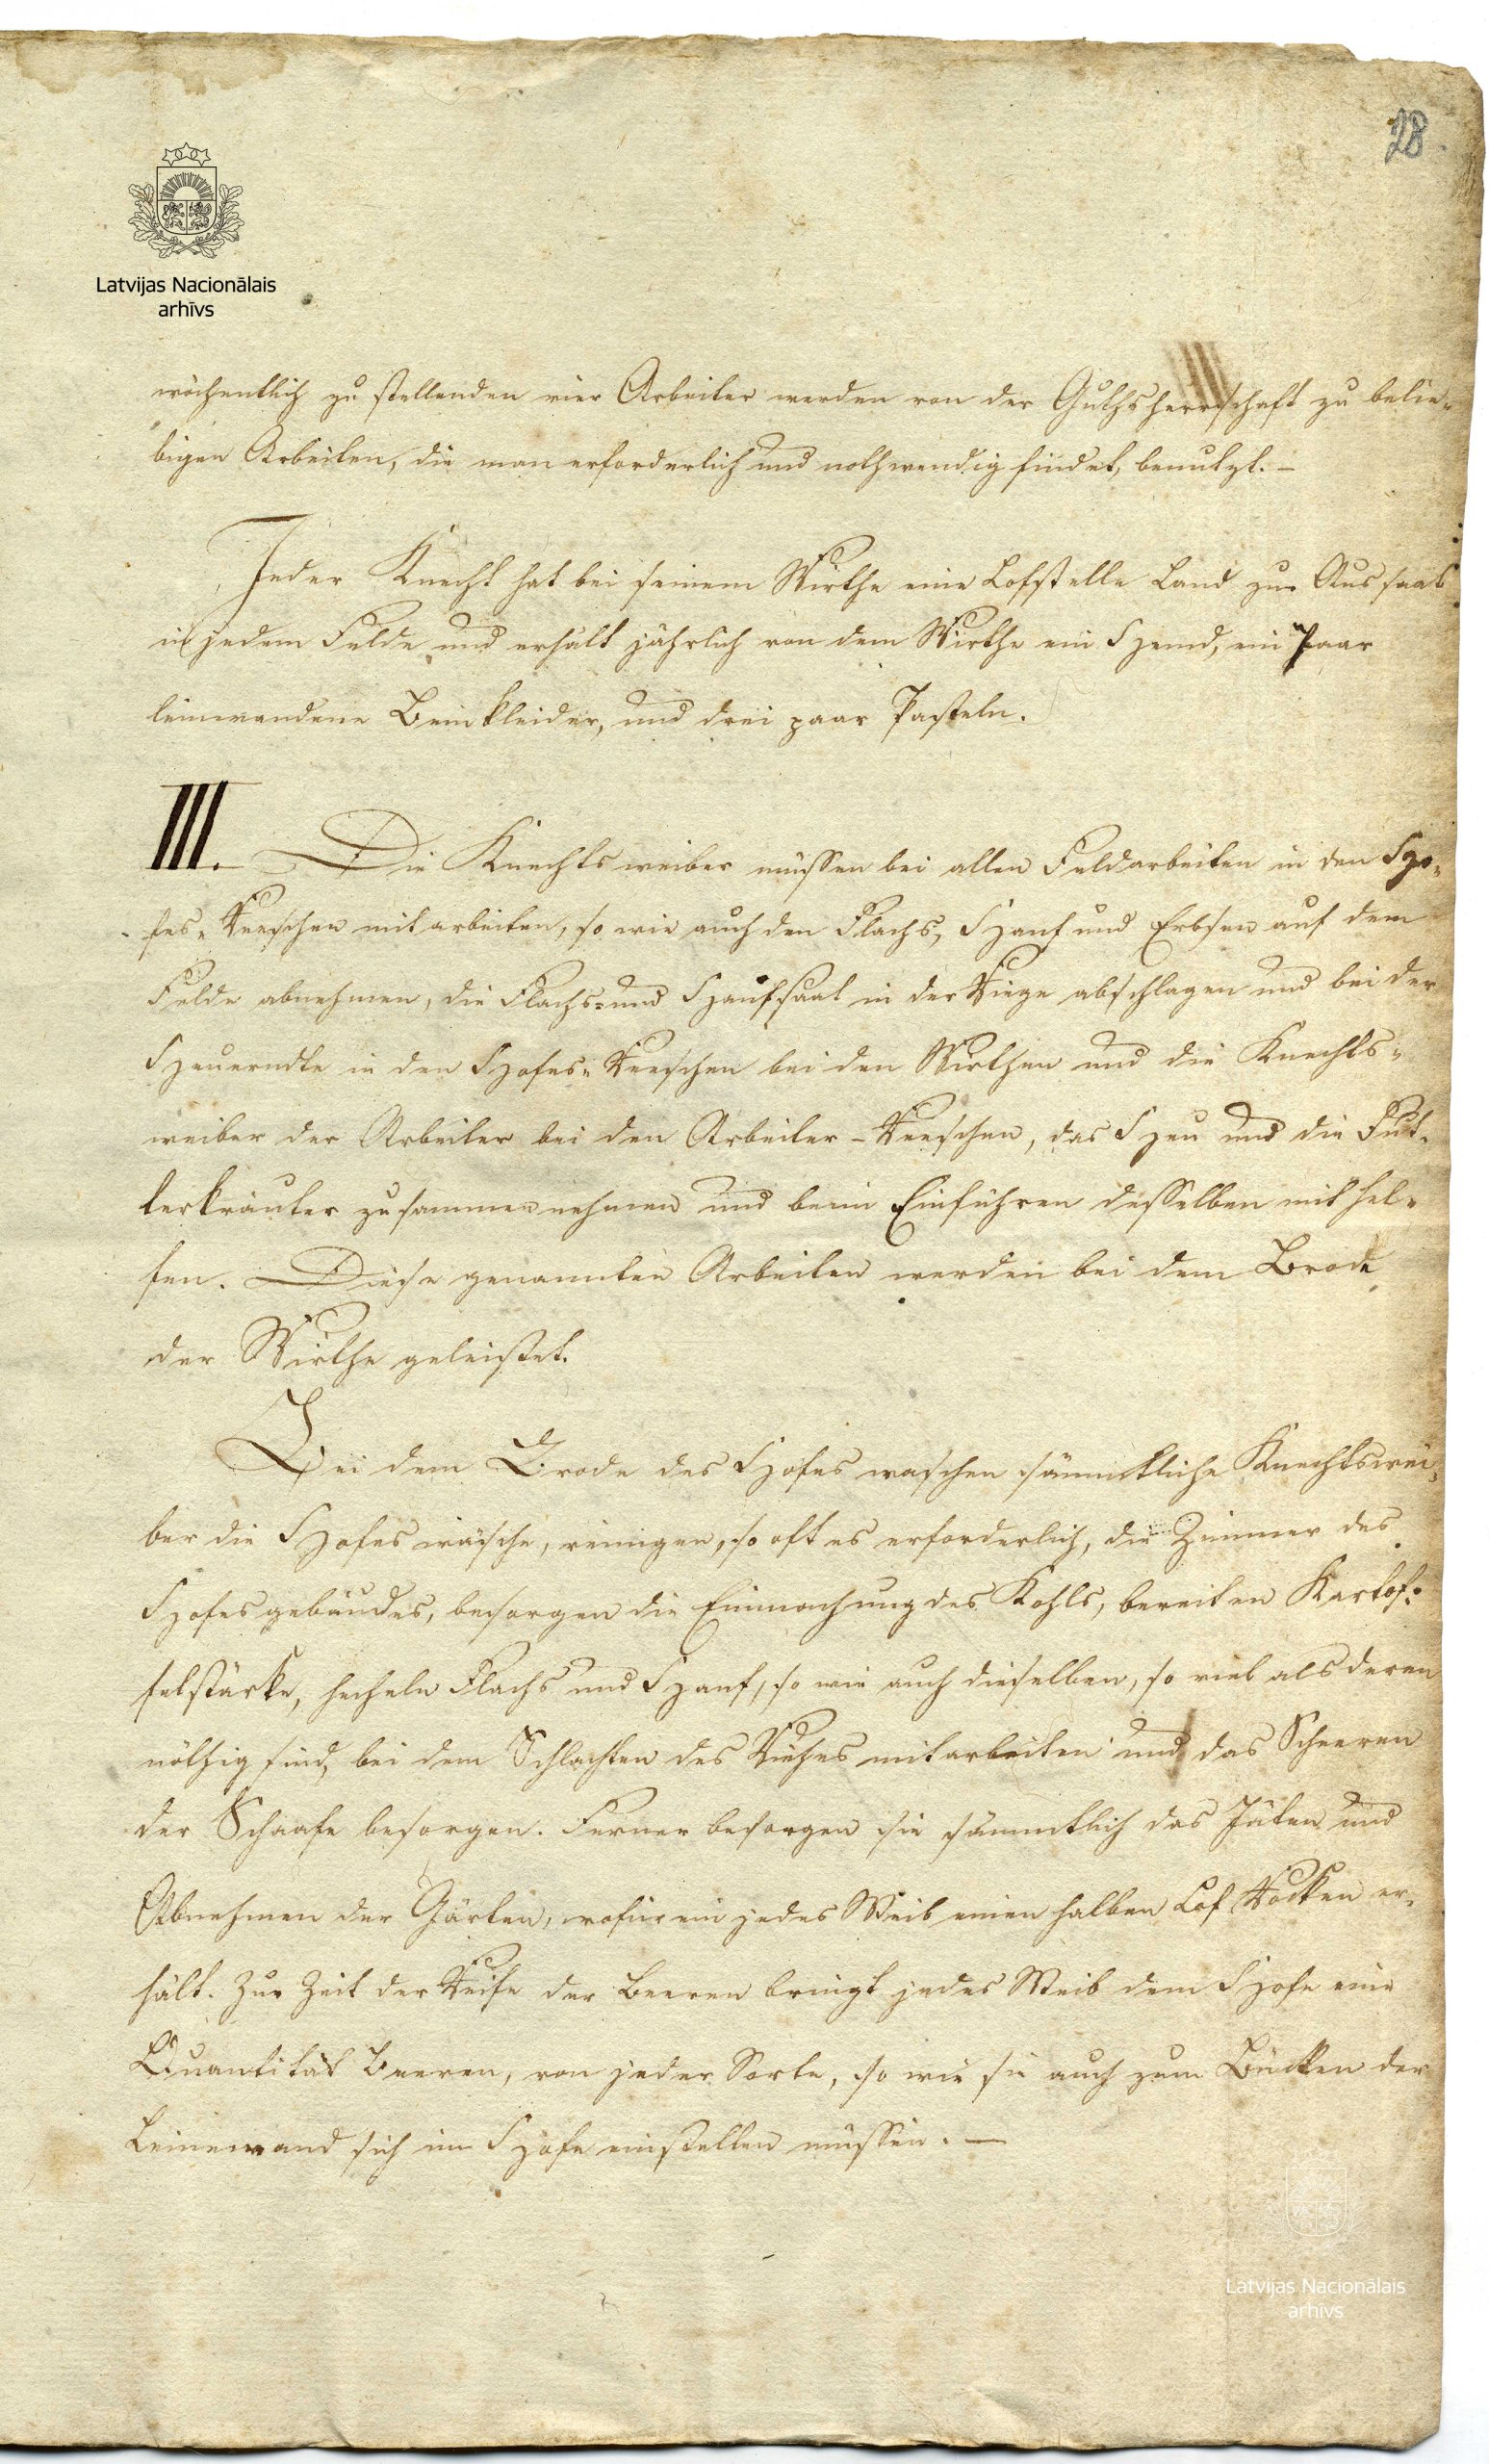 28
Latvijas Nacionālais
arhīvs
wöchentlich zu stellenden vier Arbeiter werden von der Guthsherrschaft zu belie-
bigen Arbeiten, die man erforderlich und nothwendig findet, benutzt. –
Jeder Knecht hat bei seinem Wirthe eine Lofstelle Land zur Aussaat
in jedem Felde, und erhält jährlich von dem Wirthe ein Hemd, ein Paar
leinwandene Beinkleider, und drei paar Pasteln.
III. Die Knechtsweiber müssen bei allen Feldarbeiten in den Ho-
fes-Reeschen mit arbeiten, so wie auch den Flachs, Hanf und Erbsen auf dem
Felde abnehmen, die Flachs- und Hanfsaat in der Riege abschlagen und bei der
Heuerndte in den Hofes-Reeschen bei den Wirthen und die Knechts-
weiber der Arbeiter bei den Arbeiter-Reeschen, das Heu und die Fut-
terkräuter zusammen nehmen und beim Einführen desselben mit hel-
fen. Diese genannten Arbeiten werden bei dem Brode
der Wirthe geleistet.
Bei dem Brode des Hofes waschen sämmtliche Knechtswei-
ber die Hofeswäsche, reinigen, so oft es erforderlich, die Zimmer des
Hofesgebäudes, besorgen die Einmachung des Kohls, bereiten Kartof-
felstärke, hecheln Flachs und Hanf, so wie auch dieselben, so viel als deren
nöthig sind, bei dem Schlachten des Viehes mitarbeiten und das Scheeren
der Schaafe besorgen. Ferner besorgen sie sämmtlich das Jäten und
Abnehmen der Gärten, wofür ein jedes Weib einen halben Lof Rocken er-
hält. Zur Zeit der Reife der Beeren bringt jedes Weib dem Hofe eine
Quantität Beeren, von jeder Sorte, so wie sie auch zum Bücken der
Leinewand sich im Hofe einstellen müssen. —
Latvijas Nacionālais
arhīvs